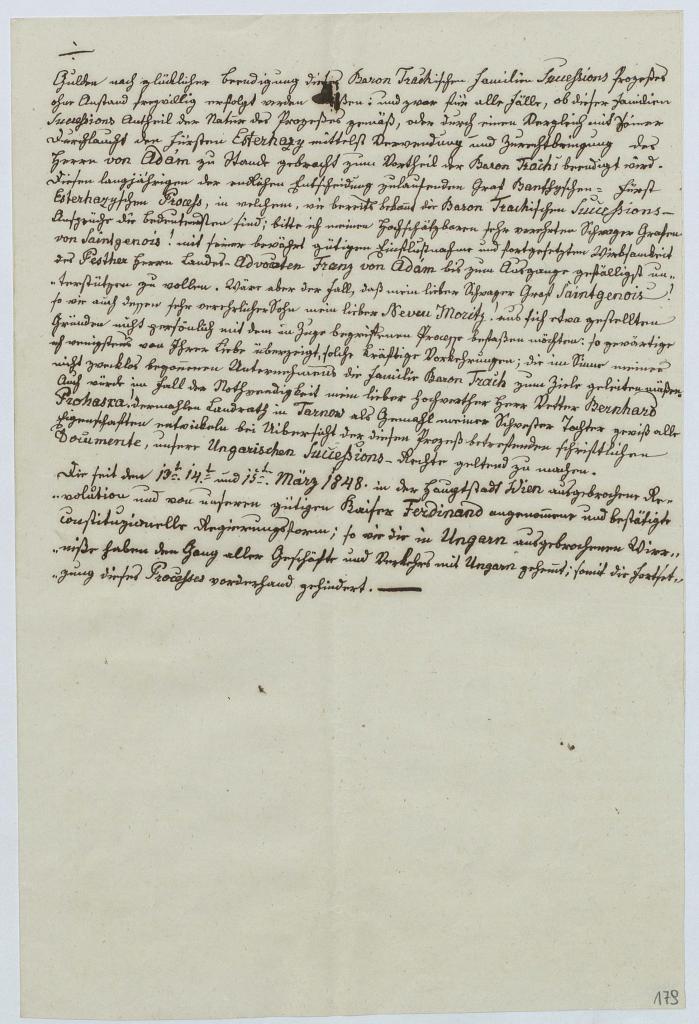 Gulden nach glücklicher Beendigung dieses Baron Trachischen Familien Successions Prozeßes
ohne Anstand freywillig erfolgt werden müßen: und zwar für alle Fälle, ob dieser Familien
Successions Antheil der Natur des Prozeßes gemäß, oder durch einen Vergleich mit Seiner
Durchlaucht dem Fürsten Esterhazy mittelst Verwendung und Zurechtbringung des
Herrn von Adam zu Stande gebracht zum Vortheil der Baron Trachs beendigt wird.
Diesen langjährigen der endlichen Entscheidung zulaufenden Graf Banffyschen = Fürst
Esterhazyschen Proceß, in welchem, wie bereits bekannt die Baron Trachischen Successions-
Ansprüche die bedeutendsten sind; bitte ich meinen Hochschätzbaren sehr verehrten Schwager Grafen
von Saintgenois: mit seiner bewährt gütigen Einflußnahme und fortgesetzten Wirksamkeit
des Pesther Herrn Landes-Advokaten Franz von Adam bis zum Ausgange gefälligst un-
terstützen zu wollen. Wäre aber der Fall, daß mein lieber Schwager Graf Saintgenois!
so wie auch dessen sehr verehrlicher Sohn mein lieber Neveu Moritz. aus sich etwa gestellten
Gründen nicht persönlich mit dem im Zuge begriffenen Processe befaßen möchten: so gewärtige
ich wenigstens von Ihrer Liebe überzeugt, solche kräftige Vorkehrungen; die im Sinne meines
nicht zwecklos begonnenen Unternehmens die Familie Baron Trach zum Ziele geleiten müßen.
Auch würde im Fall der Nothwendigkeit mein lieber hochwerther Herr Vetter Bernhard
Prohaska, dermahlen Landrath in Tarnow als Gemahl meiner Schwester Tochter gewiß alle
Eigenschaften entwickeln bei Uibersicht der diesen Prozeß betreffenden schriftlichen
Documente, unsere Ungarischen Successions-Rechte geltend zu machen.
Die seit dem 13t. 14t. und 15t. März 1848. in der Hauptstadt Wien ausgebrochene Re-
volution und von unserem gütigen Kaiser Ferdinand angenommene und bestätigte
Constituzionelle Regierungsform; so wie die in Ungarn ausgebrochenen Wirr-
niße haben den Gang aller Geschäfte und Verkehrs mit Ungarn gehemmt; somit die Fortset-
zung dieses Processes vorderhand gehindert. —
179